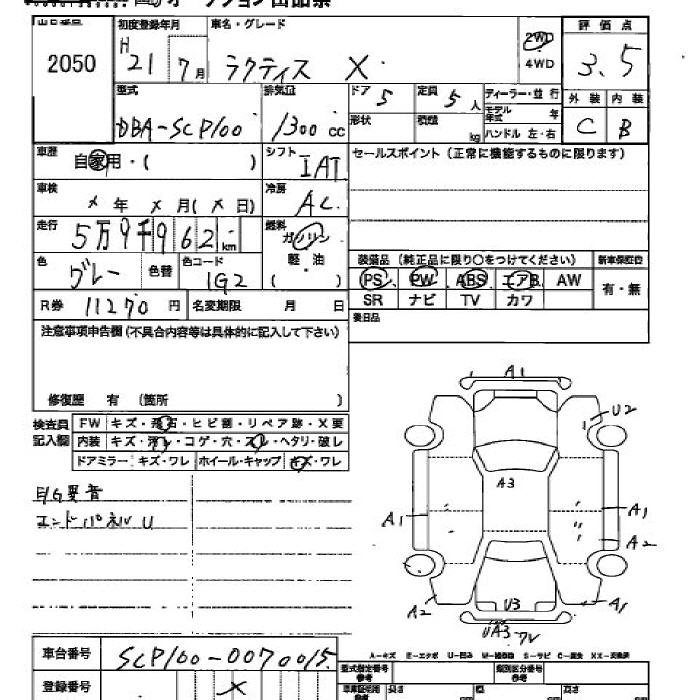 オークション出品票
2050
初度登録年月
H 21 7月
車名・グレード
ラクティス X
2WD
4WD
評価点
3.5
型式
DBA-SCP100
排気量
1300 cc
ドア 5
定員 5人
形状
積載 kg
ディーラー・並行
モデル年式 年
ハンドル 左・右
外装 内装
C B
車歴
自家用・( )
シフト
IAT
セールスポイント(正常に機能するものに限ります)
車検
× 年 × 月(× 日)
冷房
AC
走行
5万9千962 km
燃料
ガソリン
軽・油
色
グレー
色替
色コード
1G2
装備品(純正品に限り○をつけてください)
新車保証位
PS PW ABS エアB AW
SR ナビ TV カワ
有・無
R券 11270円
名変期限 月 日
後日品
注意事項申告欄(不具合内容等は具体的に記入して下さい)
修復歴 有 (箇所 )
検査員記入欄
FW キズ・飛石・ヒビ割・リペア跡・X要
内装 キズ・汚レ・コゲ・穴・スレ・ヘタリ・破レ
ドアミラー キズ・ワレ ホイール・キャップ キズ・ワレ
E/G異音
エンドパネルU
A1
U2
A3
A1
A1
A2
A2
U3
A1
UA3
A-キズ E-エクボ U-凹み W-補修跡 S-サビ C-腐食 XX-交換済
車台番号
SCP100-0070015
型式指定番号 参考
類別区分番号 参考
登録番号
×
長さ
幅
高さ